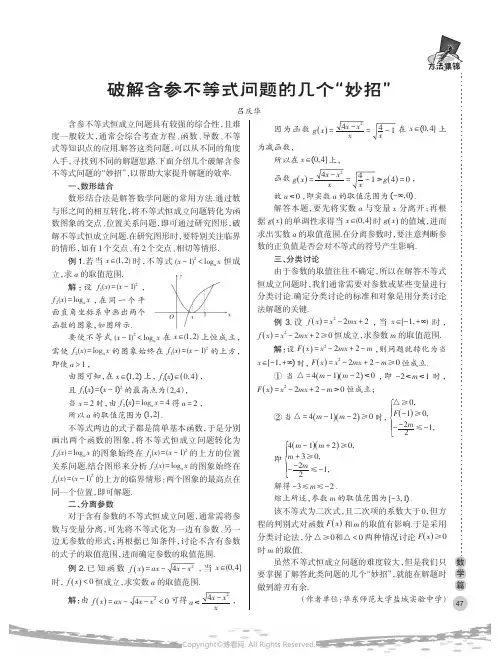 方法集锦
破解含参不等式问题的几个“妙招”
吕成华
含参不等式恒成立问题具有较强的综合性，且难
度一般较大，通常会综合考查方程、函数、导数、不等
式等知识点的应用.解答这类问题，可以从不同的角度
入手，寻找到不同的解题思路.下面介绍几个破解含参
不等式问题的“妙招”，以帮助大家提升解题的效率.
一、数形结合
数形结合法是解答数学问题的常用方法.通过数
与形之间的相互转化，将不等式恒成立问题转化为函
数图象的交点、位置关系问题，即可通过研究图形，破
解不等式恒成立问题.在研究图形时，要特别关注临界
的情形，如有1个交点、有2个交点、相切等情形.
例1.若当 x∈(1,2) 时，不等式 (x-1)²<logₐx 恒成
立，求 a 的取值范围.
解：设 f₁(x)=(x-1)²，
f₂(x)=logₐx，在同一个平
面直角坐标系中画出两个
函数的图象，如图所示.
要使不等式 (x-1)²<logₐx 在 x∈(1,2) 上恒成立，
需使 f₂(x)=logₐx 的图象始终在 f₁(x)=(x-1)² 的上方，
即使 a>1，
由图可知，在 x∈(1,2) 上，f₁(x)∈(0,4)，
且 f₁(x)=(x-1)² 的最高点为(2,4)，
当 x=2 时，由 f₂(x)=logₐx=4 得 a=2，
所以 a 的取值范围为 (1,2].
不等式两边的式子都是简单基本函数，于是分别
画出两个函数的图象，将不等式恒成立问题转化为
f₂(x)=logₐx 的图象始终在 f₁(x)=(x-1)² 的上方的位置
关系问题.结合图形来分析 f₂(x)=logₐx 的图象始终在
f₁(x)=(x-1)² 的上方的临界情形：两个图象的最高点在
同一个位置，即可解题.
二、分离参数
对于含有参数的不等式恒成立问题，通常需将参
数与变量分离，可先将不等式化为一边有参数、另一
边无参数的形式；再根据已知条件，讨论不含有参数
的式子的取值范围，进而确定参数的取值范围.
例2.已知函数 f(x)=ax-√(4x-x²)，当 x∈(0,4]
时，f(x)<0 恒成立，求实数 a 的取值范围.
解：由 f(x)=ax-√(4x-x²)<0 可得 a<√(4x-x²)/x，
因为函数 g(x)=√(4x-x²)/x=√(4/x-1) 在 x∈(0,4] 上
为减函数，
所以在 x∈(0,4] 上，
函数 g(x)=√(4x-x²)/x=√(4/x-1)≥g(4)=0，
故 a<0，即实数 a 的取值范围为 (-∞,0).
解答本题，要先将实数 a 与变量 x 分离开；再根
据 g(x) 的单调性求得当 x∈(0,4] 时 g(x) 的值域，进而
求出实数 a 的取值范围.在分离参数时，要注意判断参
数的正负值是否会对不等式的符号产生影响.
三、分类讨论
由于参数的取值往往不确定，所以在解答不等式
恒成立问题时，我们通常需要对参数或某些变量进行
分类讨论.确定分类讨论的标准和对象是用分类讨论
法解题的关键.
例3.设 f(x)=x²-2mx+2，当 x∈[-1,+∞) 时，
f(x)=x²-2mx+2≥0 恒成立，求参数 m 的取值范围.
解：设 F(x)=x²-2mx+2-m，则问题就转化为当
x∈[-1,+∞) 时，F(x)=x²-2mx+2-m≥0 恒成立.
①当 △=4(m-1)(m+2)<0，即 -2<m<1 时，
F(x)=x²-2mx+2-m>0 恒成立；
②当 △=4(m-1)(m-2)≥0 时，{△≥0, F(-1)≥0, -(-2m)/2≤-1,
即{4(m-1)(m+2)≥0, m+3≥0, -(-2m)/2≤-1,
解得 -3≤m≤-2.
综上所述，参数 m 的取值范围为 [-3,1).
该不等式为二次式，且二次项的系数大于0，但方
程的判别式对函数 F(x) 和 m 的取值有影响.于是采用
分类讨论法，分 △≥0 和 △<0 两种情况讨论 F(x)≥0
时 m 的取值.
虽然不等式恒成立问题的难度较大，但是我们只
要掌握了解答此类问题的几个“妙招”，就能在解题时
做到游刃有余.
(作者单位：华东师范大学盐城实验中学)
数学篇
47
Copyright©博看网. All Rights Reserved.